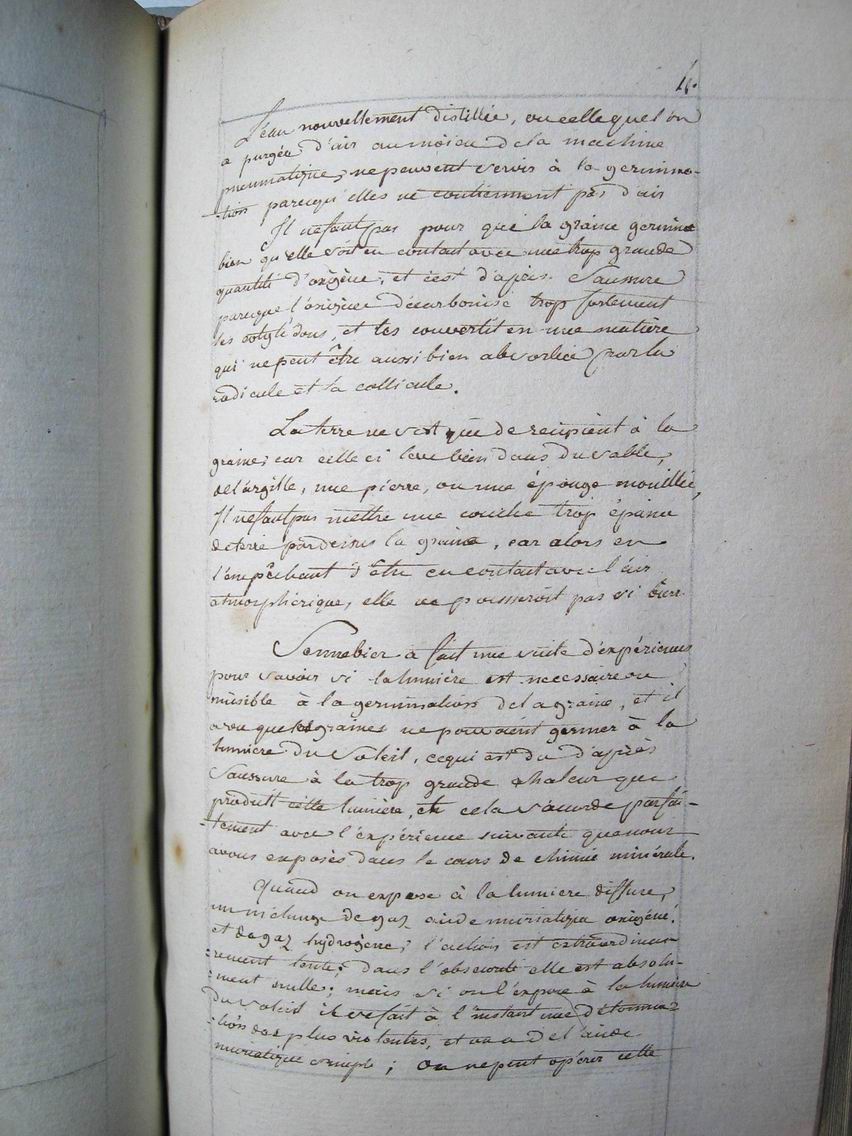 4.
L'eau nouvellement distillée, ou celle que l'on
a purgée d'air au moïen de la machine
pneumatique, ne peuvent servir à la germina-
-tion parcequ'elles ne contiennent pas d'air
Il ne faut pas pour que la graine germine
bien qu'elle soit en contact avec une trop grande
quantité d'oxigène, et c'est d'après Saussure
parceque l'oxigène décarbonise trop fortement
les cotylédons, et les convertit en une matière
qui ne peut être aussi bien absorbée par la
radicule et la collicule.
La terre ne sert que de recipient à la
graine, car celle ci leve bien dans du sable,
de l'argille, une pierre, ou une éponge mouillée,
Il ne faut pas mettre une couche trop épaisse
de terre pardessus la graine, car alors en
l'empêchant d'être en contact avec l'air
atmosphérique, elle ne pousseroit pas si bien.
Sennebier a fait une suite d'expériences
pour savoir si la lumière est necessaire ou
nuisible à la germination de la graine, et il
a vu que les graines ne pouvoient germer à la
lumière du soleil, ce qui est du d'après
Saussure à la trop grande chaleur que
produit cette lumière, et cela s'acorde parfai-
-tement avec l'expérience suivante que nous
avons exposés dans le cours de chimie minérale.
Quand on expose à la lumiere diffuse,
un mélange de gaz acide muriatique oxigéné,
et de gaz hydrogène, l'action est extraordinai-
-rement lente; dans l'obscurité elle est absolu-
-ment nulle; mais si on l'expose à la lumière
du soleil il se fait à l'instant une détonna-
-tion des plus violentes, et on a de l'acide
muriatique simple; on ne peut opérer cette